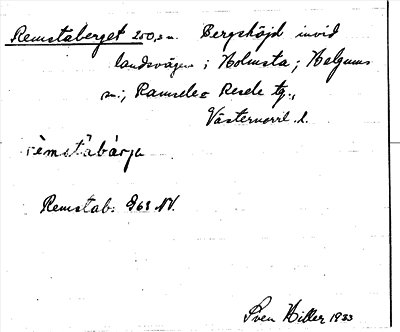 Remstaberget 200,5 m. Bergshöjd invid
landsvägen i Holmsta; Helgums
sn; Ramsele o Resele tg.,
Västernorrl. l.
rèmstàbàrja
Remstab. 963 NV.
Sven Hiller 1933